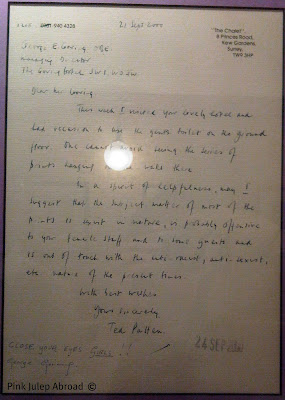 940 4328
21 Sept 2000
"The Chalet",
8 Princes Road,
Kew Gardens,
Surrey,
TW9 3HP
George E Goring OBE
Managing Director
The Goring Hotel SW1
Dear Mr Goring
This week I visited your lovely hotel and
had occasion to use the gents toilet on the ground
floor. One cannot avoid seeing the series of
prints hanging walls there
In a spirit of helpfulness, may I
suggest that the subject matter of most of the
prints is sexist in nature, is probably offensive
to your female staff and to some guests and
is out of touch with the anti-racist, anti-sexist,
etc nature of the present times.
With best wishes
Yours sincerely
Ted
CLOSE YOUR EYES !!
George Goring
24 SEP 2000
Pink Julep Abroad ©